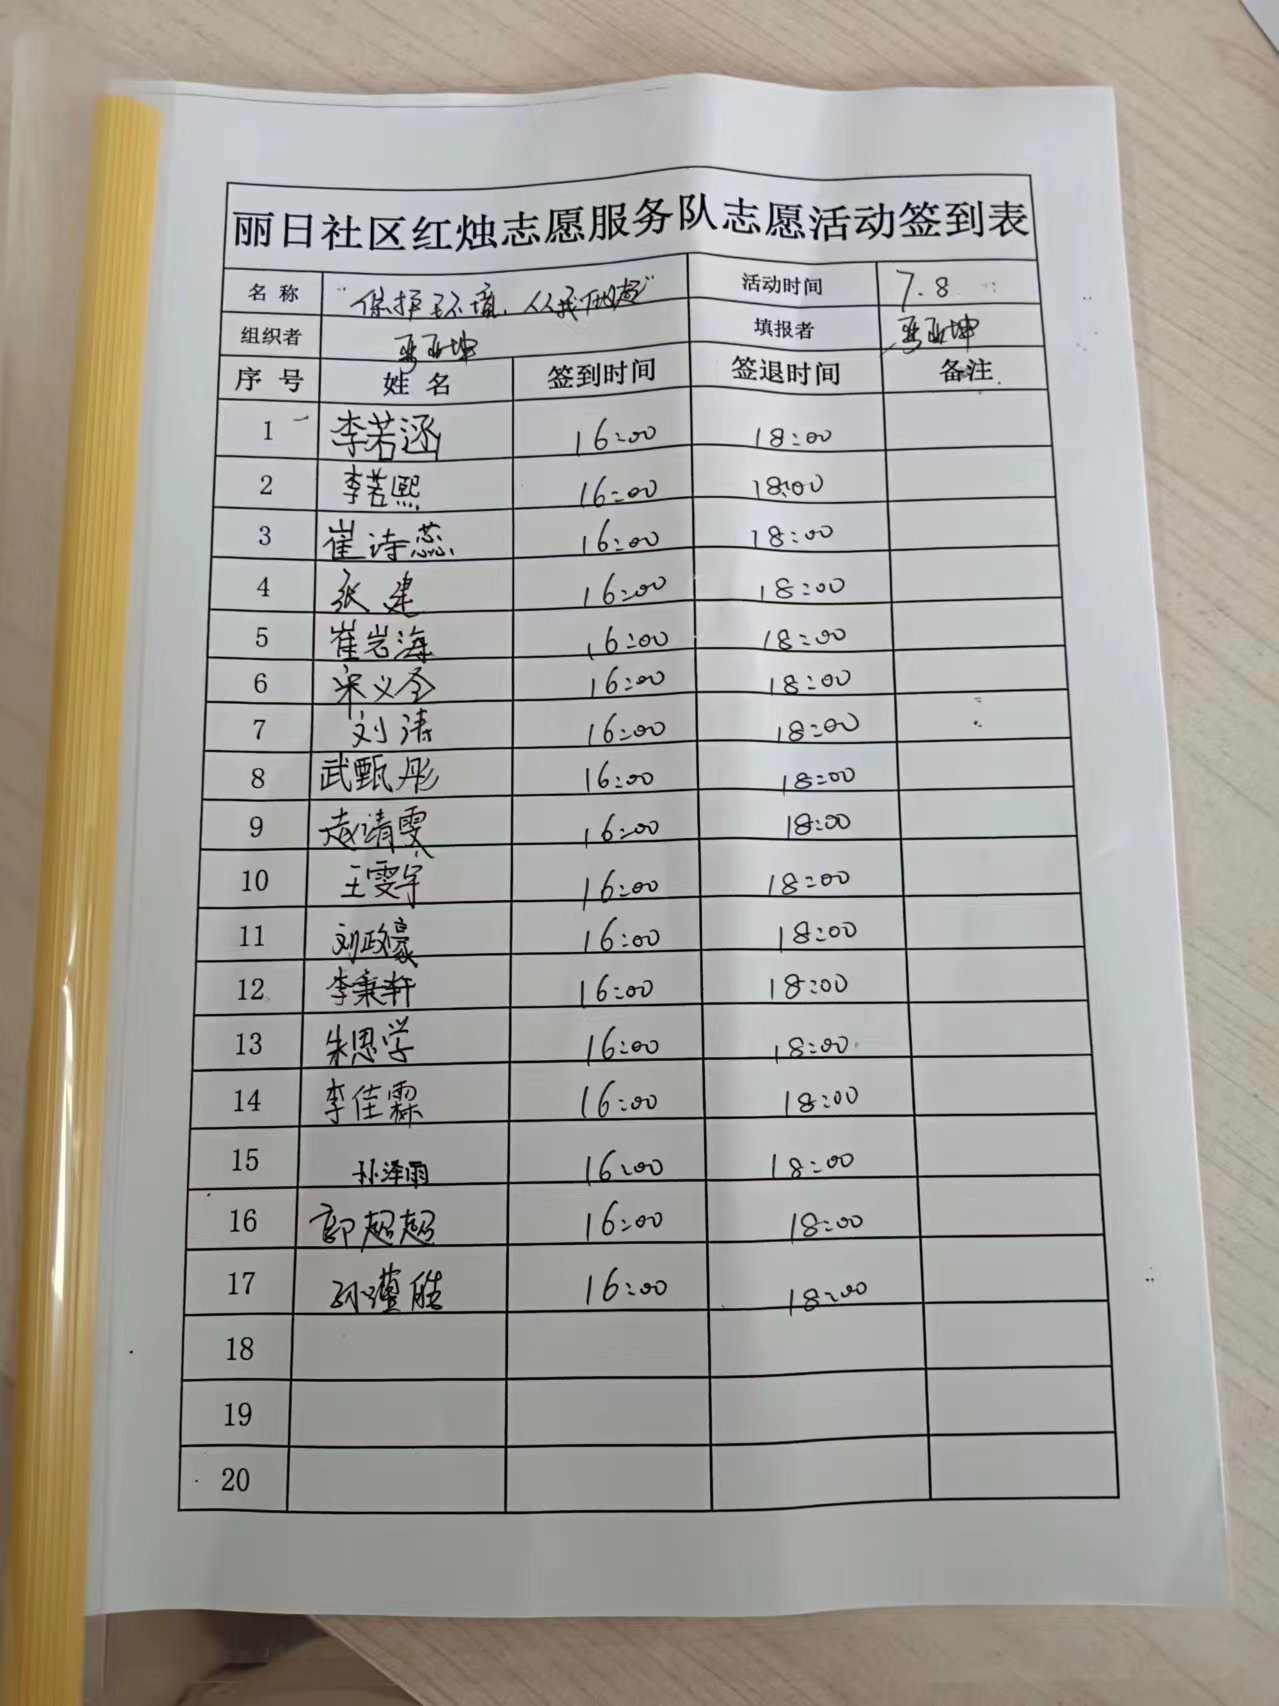 丽日社区红烛志愿服务队志愿活动签到表
名 称 "保护环境、人人 活动时间 7.8
组织者 亚坤 填报者 亚坤
序 号 姓 名 签到时间 签退时间 备注
1 李若涵 16:00 18:00
2 李若熙 16:00 18:00
3 崔诗蕊 16:00 18:00
4 张建 16:00 18:00
5 崔岩海 16:00 18:00
6 宋义全 16:00 18:00
7 刘涛 16:00 18:00
8 武甄彤 16:00 18:00
9 赵清雯 16:00 18:00
10 王雯宇 16:00 18:00
11 刘政豪 16:00 18:00
12 李秉轩 16:00 18:00
13 朱思学 16:00 18:00
14 李佳霖 16:00 18:00
15 孙泽雨 16:00 18:00
16 郭超超 16:00 18:00
17 孙 16:00 18:00
18
19
20